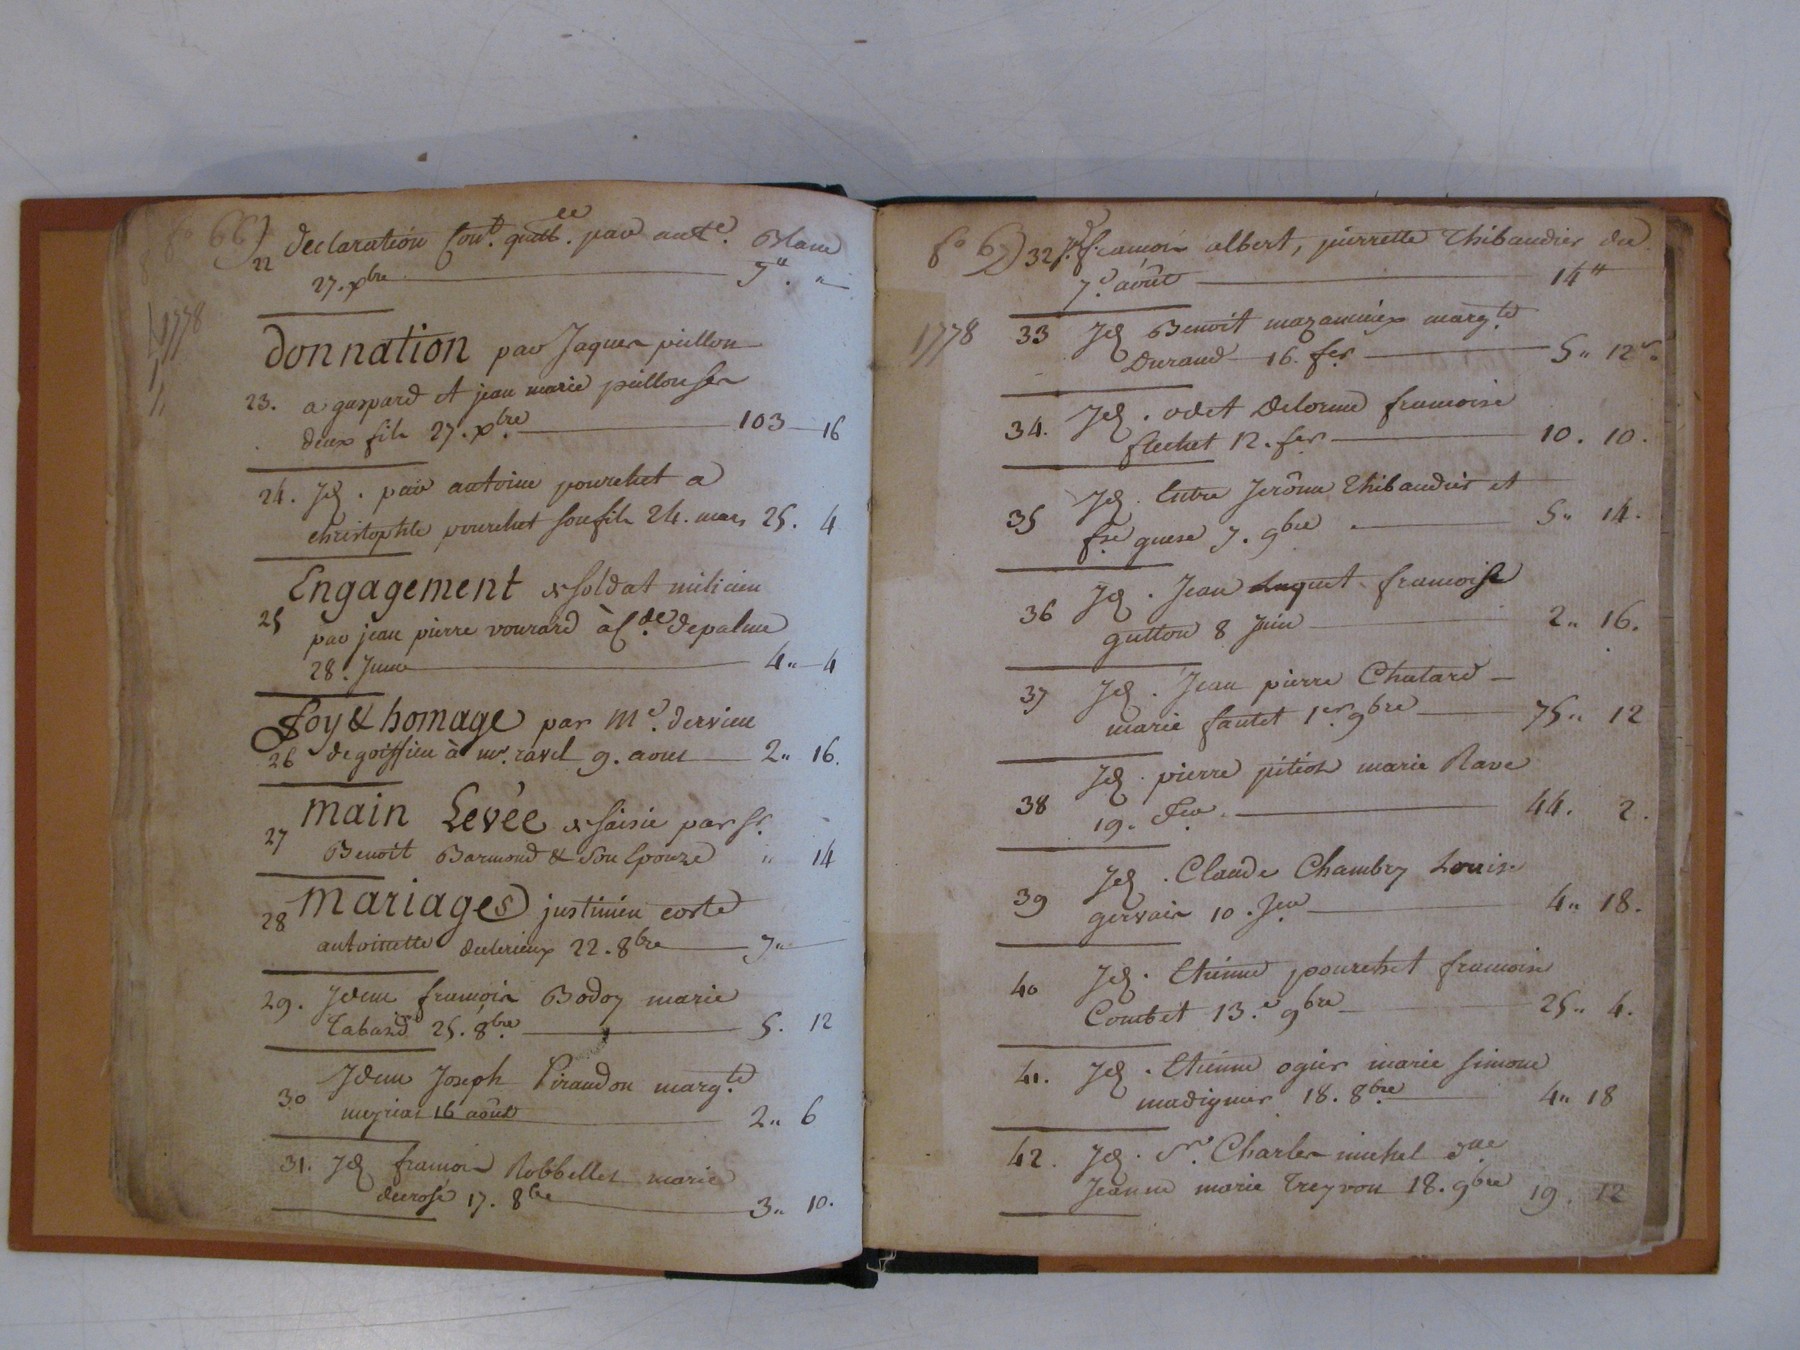 fo 66)
22 declaration Cont. quitt.ce par ant.e Blanc
27. xbre 7" "
1778
Donnation par Jaques pullon
23. a gaspard et jean marie pullon ses
deux fils 27. xbre 103 16
24. Jd. par antoine pourchet a
christophle pourchet son fils 24. mars 25. 4
Engagement de soldat milicien
25 par jean pierre vourard à C.de depalme
28. Juin 4" 4
Foy & homage par Me. dervieu
26 de goiffieu à mr. ravel 9. aout 2" 16.
Main Levée de saisie par Sr.
27 Benoit Barmond & Son Epouze " 14
Mariages justinien coste
28 antoinette 22. 8bre 7"
29. Idem françois Bodoy marie
Tabard 25. 8bre 5. 12
30 Idem Joseph Piraudon marg.te
16 août 2" 6
31. Jd françois Robbellet marie
decrose 17. 8bre 3" 10.
fo 32 Jd. françois albert, pierrette Thibaudier du
7.e août 14"
1778
33 Jd Benoit mazancieux marg.te
Durand 16. fer 5" 12
34. Jd. odet Delorme francoise
flechet 12. fer 10. 10.
35 Jd. Entre Jerôme Thibaudier et
fse 7. 9bre 5" 14.
36 Jd. Jean francoise
gutton 8 Juin 2" 16.
37 Jd. Jean pierre Chatard
marie fautet 1er 9bre 75" 12
38 Jd. pierre pitiot marie Rave
19. 44. 2.
39 Jd. Claude Chambry Louise
gervais 10. 4" 18.
40 Jd. Etienne pourchet francoise
Combet 13.e 9bre 25" 4.
41. Jd. Etienne ogier marie simone
madignier 18. 8bre 4" 18
42. Jd. Sr. Charles michel dlle
Jeanne marie Treyvou 18. 9bre 19. 12